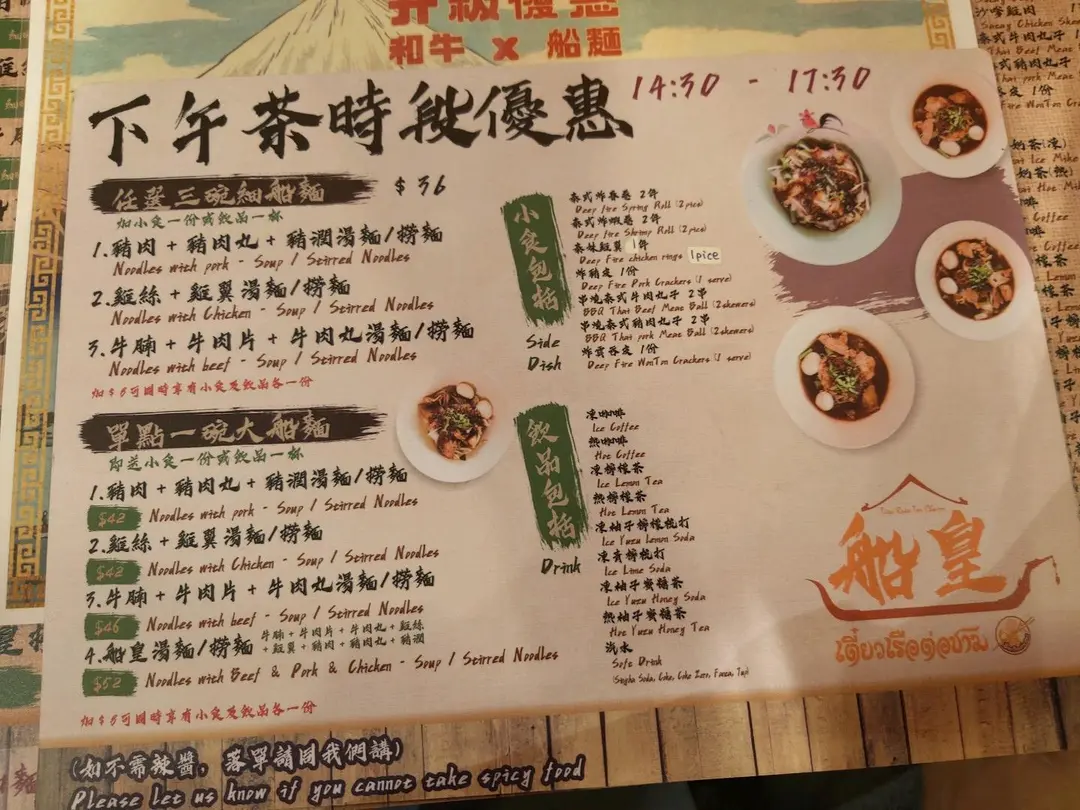 升級優惠
和牛 x 船麵
下午茶時段優惠
14:30 - 17:30
任選三碗細船麵
$36
加小食一份或飲品一杯
1.豬肉 + 豬肉丸 + 豬潤湯麵/撈麵
Noodles with pork - Soup / Stirred Noodles
2.雞絲 + 雞翼湯麵/撈麵
Noodles with Chicken - Soup / Stirred Noodles
3.牛腩 + 牛肉片 + 牛肉丸湯麵/撈麵
Noodles with beef - Soup / Stirred Noodles
加$6可同時享有小食及飲品各一份
單點一碗大船麵
即送小食一份或飲品一杯
1.豬肉 + 豬肉丸 + 豬潤湯麵/撈麵
$42 Noodles with pork - Soup / Stirred Noodles
2.雞絲 + 雞翼湯麵/撈麵
$42 Noodles with Chicken - Soup / Stirred Noodles
3.牛腩 + 牛肉片 + 牛肉丸湯麵/撈麵
$46 Noodles with beef - Soup / Stirred Noodles
4.船皇湯麵/撈麵 牛腩 + 牛肉片 + 牛肉丸 + 雞絲
+ 雞翼 + 豬肉 + 豬肉丸 + 豬潤
$52 Noodles with Beef & Pork & Chicken - Soup / Stirred Noodles
加$6可同時享有小食及飲品各一份
小食包括
Side
Dish
泰式炸春卷 2件
Deep Fire Spring Roll (2pice)
泰式炸蝦卷 2件
Deep Fire Shrimp Roll (2pice)
泰味雞翼 1件
Deep Fire chicken rings 1pice
炸豬皮 1份
Deep Fire Pork Crackers (1 serve)
串燒泰式牛肉丸子 2串
BBQ Thai Beef Meat Ball (2skewers)
串燒泰式豬肉丸子 2串
BBQ Thai pork Meat Ball (2skewers)
炸雲吞皮 1份
Deep Fire WonTon Crackers (1 serve)
飲品包括
Drink
凍咖啡
Ice Coffee
熱咖啡
Hot Coffee
凍檸檬茶
Ice Lemon Tea
熱檸檬茶
Hot Lemon Tea
凍柚子檸檬梳打
Ice Yuzu Lemon Soda
凍青檸梳打
Ice Lime Soda
凍柚子蜜糖茶
Ice Yuzu Honey Soda
熱柚子蜜糖茶
Hot Yuzu Honey Tea
汽水
Soft Drink
(Singha Soda, Coke, Coke Zero, Fanta, 7up)
船皇
(如不需辣醬，落單請同我們講)
Please let us know if you cannot take spicy food